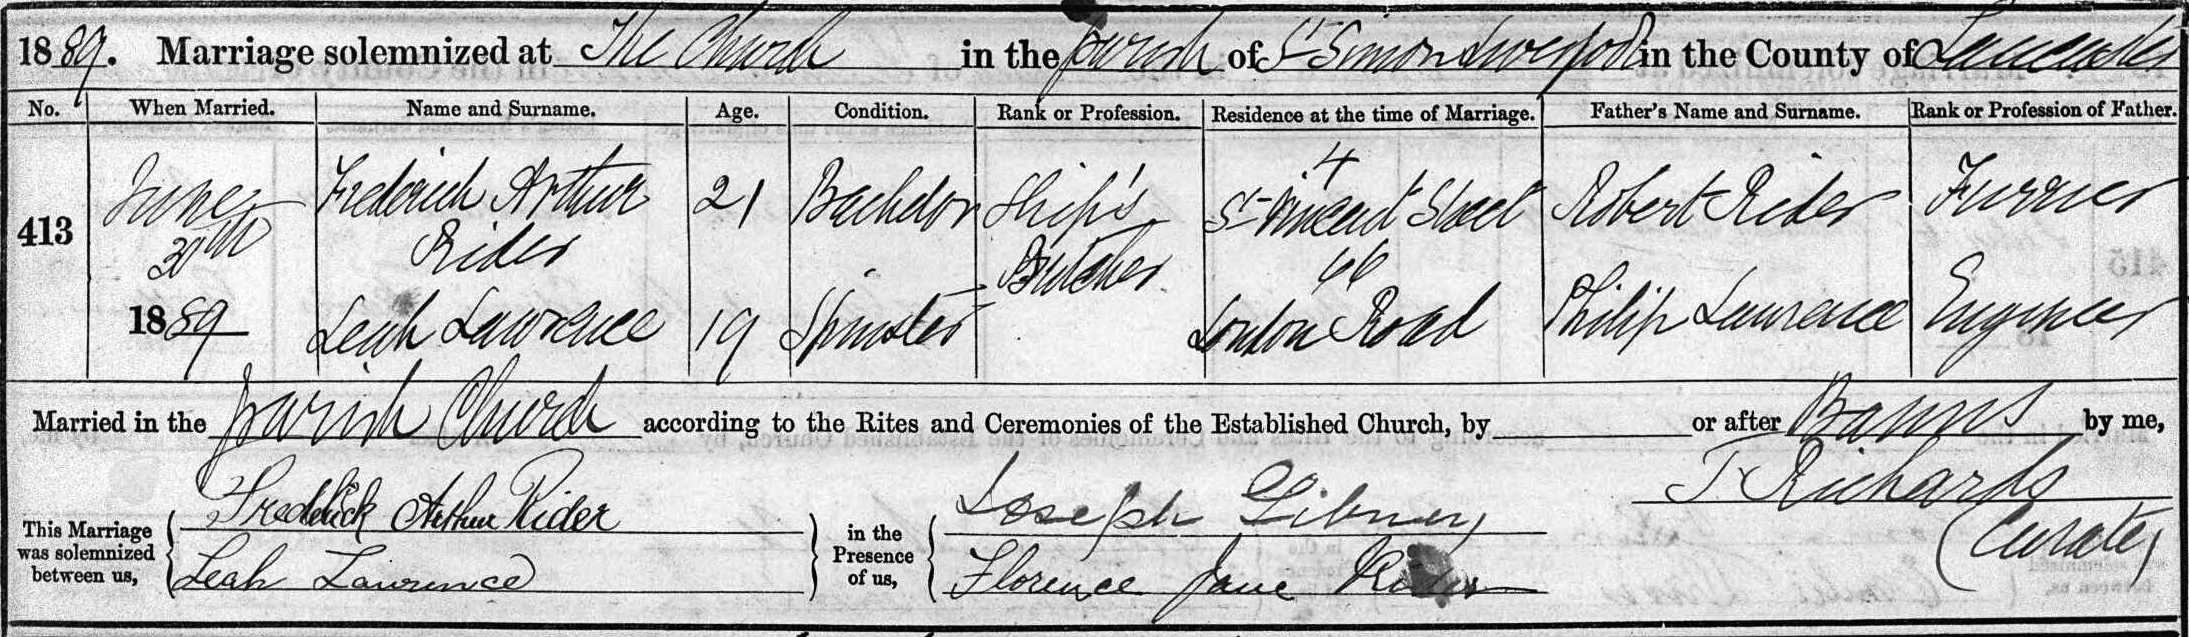 1889. Marriage solemnized at The Church in the parish of St Simon Liverpool in the County of Lancaster
No. When Married. Name and Surname. Age. Condition. Rank or Profession. Residence at the time of Marriage. Father's Name and Surname. Rank or Profession of Father.
413 June 30th 1889 Frederick Arthur Rider 21 Bachelor Ship's Butcher 4 St Vincent Street Robert Rider Furrier
Leah Lawrence 19 Spinster 66 London Road Philip Lawrence Engineer
Married in the parish Church according to the Rites and Ceremonies of the Established Church, by or after Banns by me,
This Marriage was solemnized between us, Frederick Arthur Rider in the Presence of us, Joseph T Richards
Leah Lawrence Florence Jane Rider Curate